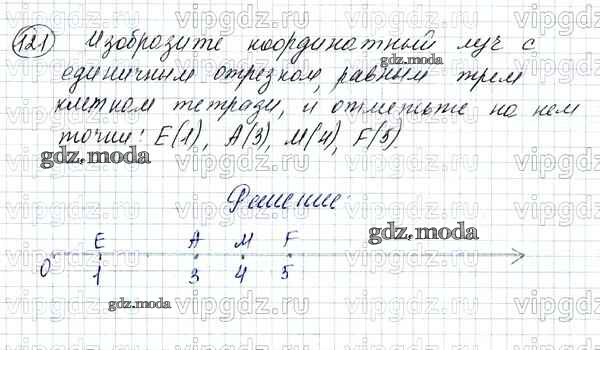 121 Изобразите координатный луч с
единичным отрезком, равным трем
клеткам тетради, и отметьте на нем
точки: E(1), A(3), M(4), F(5).
gdz.moda
gdz.moda
Решение
gdz.moda
E A M F
0 1 3 4 5
gdz.moda
vipgdz.ru